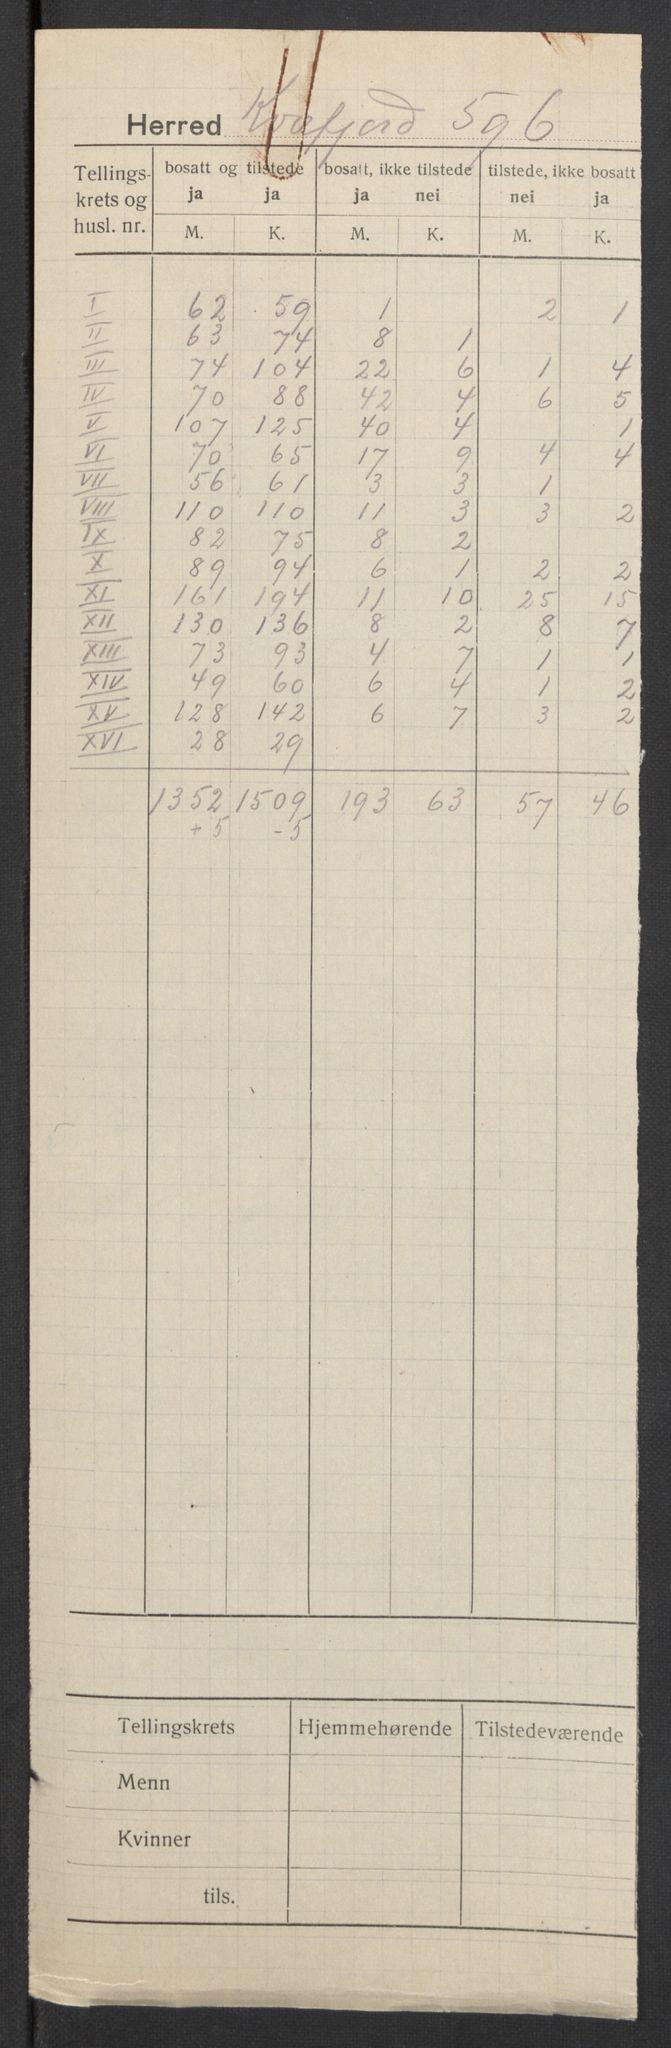 Herred Kvæfjord 596
Tellings- bosatt og tilstede bosatt, ikke tilstede tilstede, ikke bosatt
krets og ja ja ja nei nei ja
husl. nr. M. K. M. K. M. K.
I 62 59 1 2 1
II 63 74 8 1
III 74 104 22 6 1 4
IV 70 88 42 4 6 5
V 107 125 40 4 1
VI 70 65 17 9 4 4
VII 56 61 3 3 1
VIII 110 110 11 3 3 2
IX 82 75 8 2
X 89 94 6 1 2 2
XI 161 194 11 10 25 15
XII 130 136 8 2 8 7
XIII 73 93 4 7 1 1
XIV 49 60 6 4 1 2
XV 128 142 6 7 3 2
XVI 28 29
1352 1509 193 63 57 46
+5 -5
Tellingskrets Hjemmehørende Tilstedeværende
Menn
Kvinner
tils.